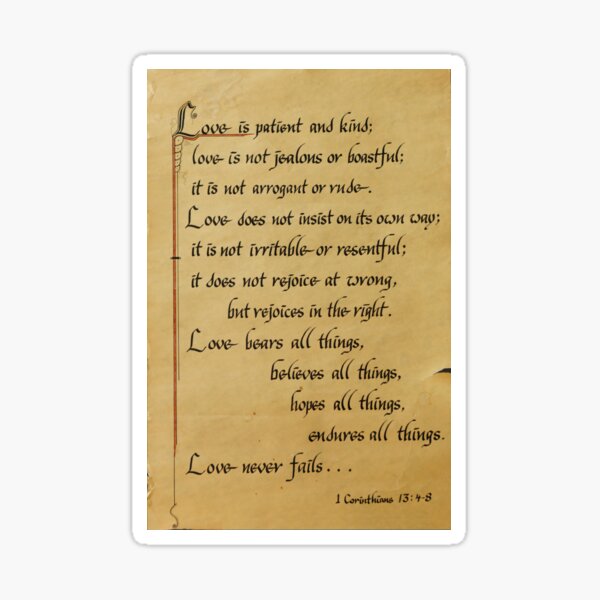 Love is patient and kind;
love is not jealous or boastful;
it is not arrogant or rude.
Love does not insist on its own way;
it is not irritable or resentful;
it does not rejoice at wrong,
but rejoices in the right.
Love bears all things,
believes all things,
hopes all things,
endures all things.
Love never fails...
1 Corinthians 13:4-8